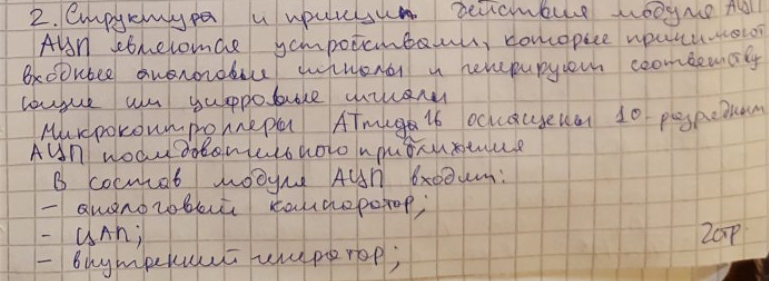 2. Структура и принцип действия модуля АЦП
АЦП являются устройствами, которые принимают
входные аналоговые сигналы и генерируют соответству
ющие им цифровые сигналы
Микроконтроллеры ATmega 16 оснащены 10-разрядным
АЦП последовательного приближения
В состав модуля АЦП входят:
- аналоговый компаратор;
- ЦАП;
2стр
- внутренний генератор;